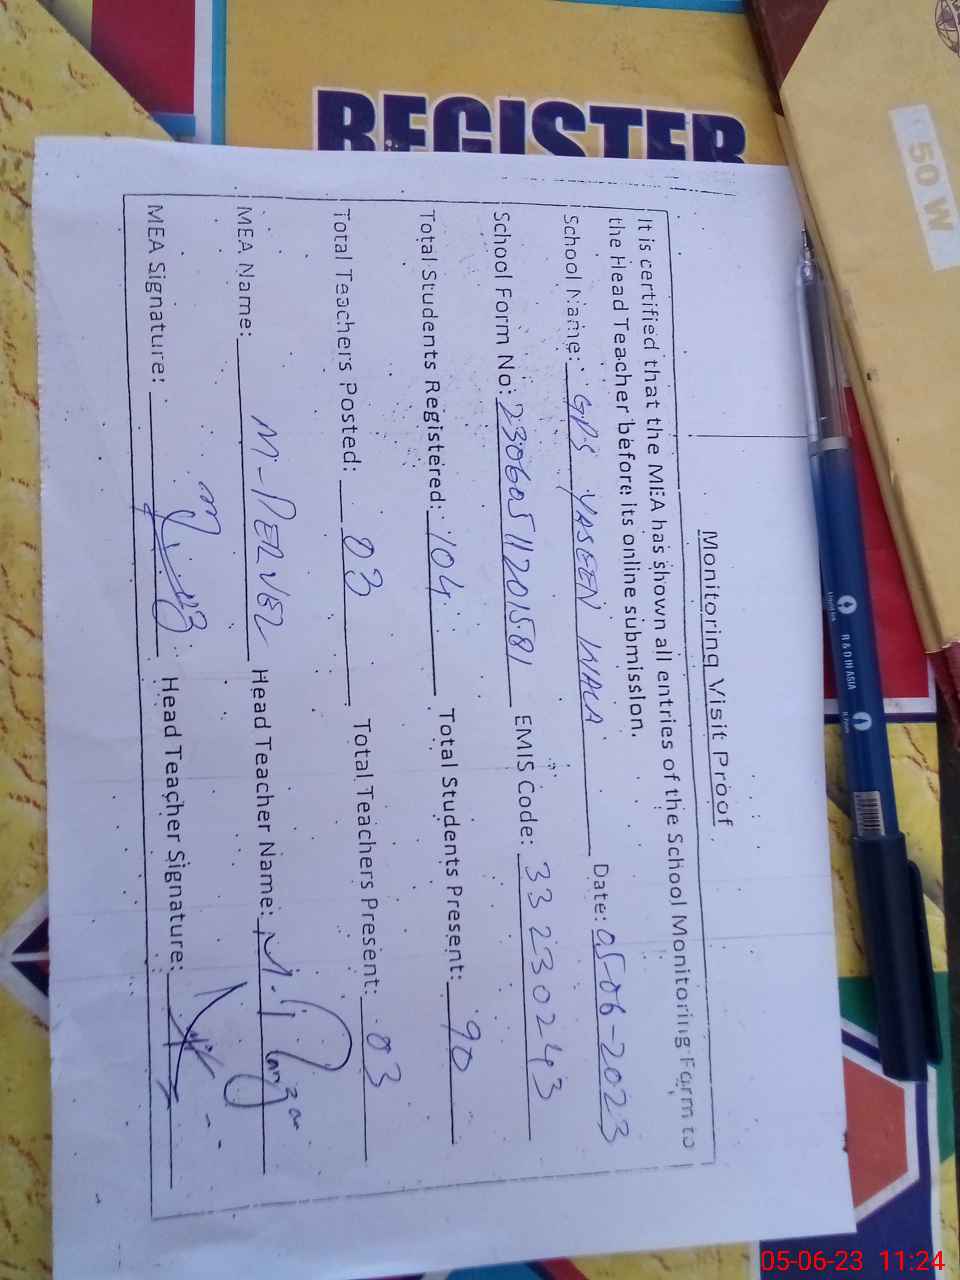 REGISTER
50 W
Monitoring Visit Proof
It is certified that the MEA has shown all entries of the School Monitoring Form to
the Head Teacher before its online submission.
School Name: GPS YASEEN WALA Date: 05-06-2023
School Form No: 23060511201581 EMIS Code: 33230243
Total Students Registered: 104 Total Students Present: 90
Total Teachers Posted: 03 Total Teachers Present: 03
MEA Name: M-PERVEZ Head Teacher Name: M.
MEA Signature: Head Teacher Signature:
R & D IN ASIA
05-06-23 11:24